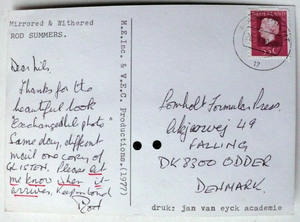 Mirrored & Withered
ROD SUMMERS.
Dear Nils,
Thanks for the
beautiful book
"Exchangeable photo"
Same day, different
mail one copy of
GLISTEN. Please let
me know when it
arrives. Regards
Rod
M.E.Inc. & V.E.C. Productions.(1977)
NEDERLAND
55c
Lomholt Formular Press.
49
FALLING
DK 8300 ODDER
DENMARK.
druk: jan van eyck academie